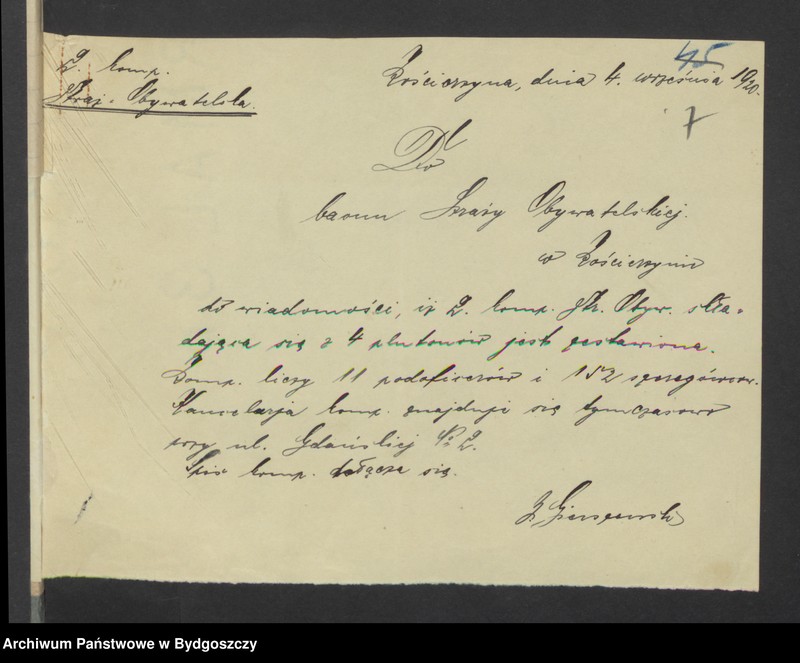 45
2. komp.
Kościerzyna, dnia 4. września 1920.
Straż. Obywatelska.
7
Do
baonu Straży Obywatelskiej.
w Kościerzynie
do wiadomości, iż 2. komp. Str. Obyw. skła-
dająca się z 4 plutonów jest zestawiona.
Komp. liczy 11 podoficerów i 152 szeregowców.
Kancelarja komp. znajduje się tymczasowo
przy ul. Gdańskiej No 2.
Spis komp. dołącza się.
Archiwum Państwowe w Bydgoszczy